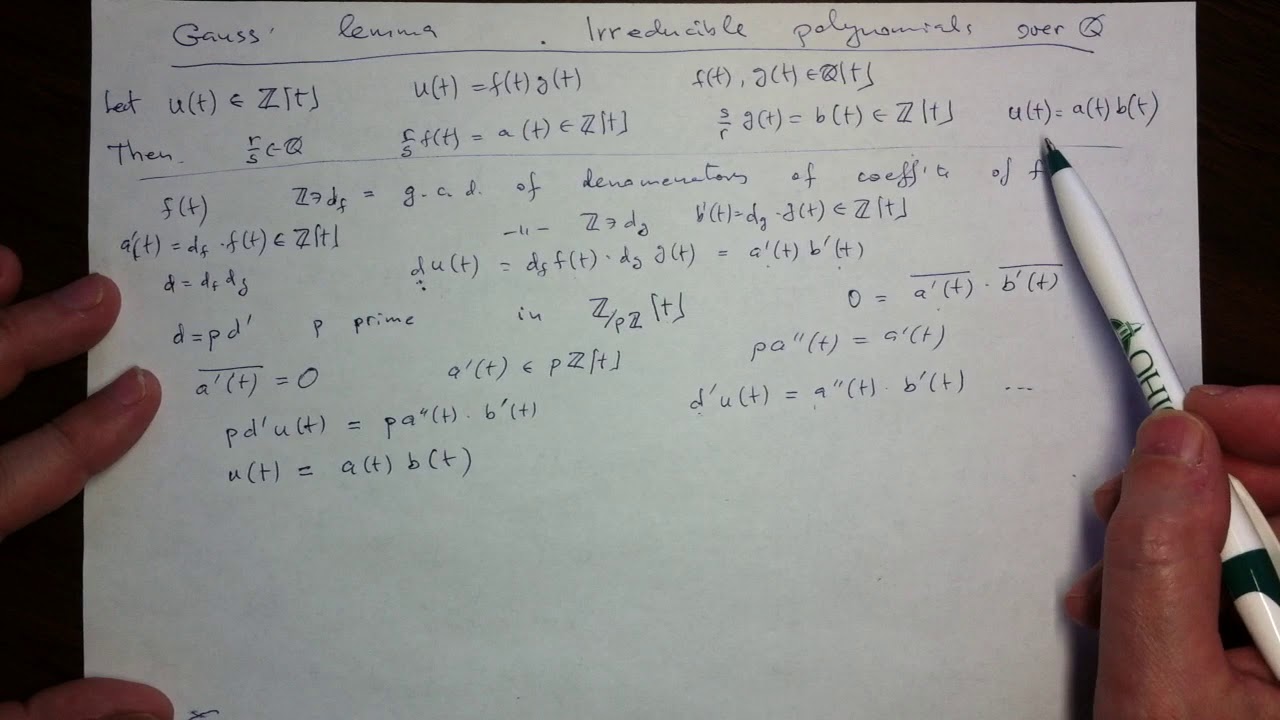 Gauss' lemma . Irreducible polynomials over ℚ
Let u(t) ∈ ℤ[t] u(t) = f(t) g(t) f(t), g(t) ∈ ℚ[t]
Then r/s ∈ ℚ r/s f(t) = a(t) ∈ ℤ[t] s/r g(t) = b(t) ∈ ℤ[t] u(t) = a(t) b(t)
f(t) ℤ ∋ d_f = g.c.d. of denomenators of coeff'ts of f
a'(t) = d_f · f(t) ∈ ℤ[t] -"- ℤ ∋ d_g b'(t) = d_g · g(t) ∈ ℤ[t]
d = d_f d_g d u(t) = d_f f(t) · d_g g(t) = a'(t) b'(t)
d = p d' p prime in ℤ/pℤ [t] 0 = \overline{a'(t)} · \overline{b'(t)}
\overline{a'(t)} = 0 a'(t) ∈ pℤ[t] p a''(t) = a'(t)
p d' u(t) = p a''(t) · b'(t) d' u(t) = a''(t) · b'(t) ...
u(t) = a(t) b(t)
OHIO